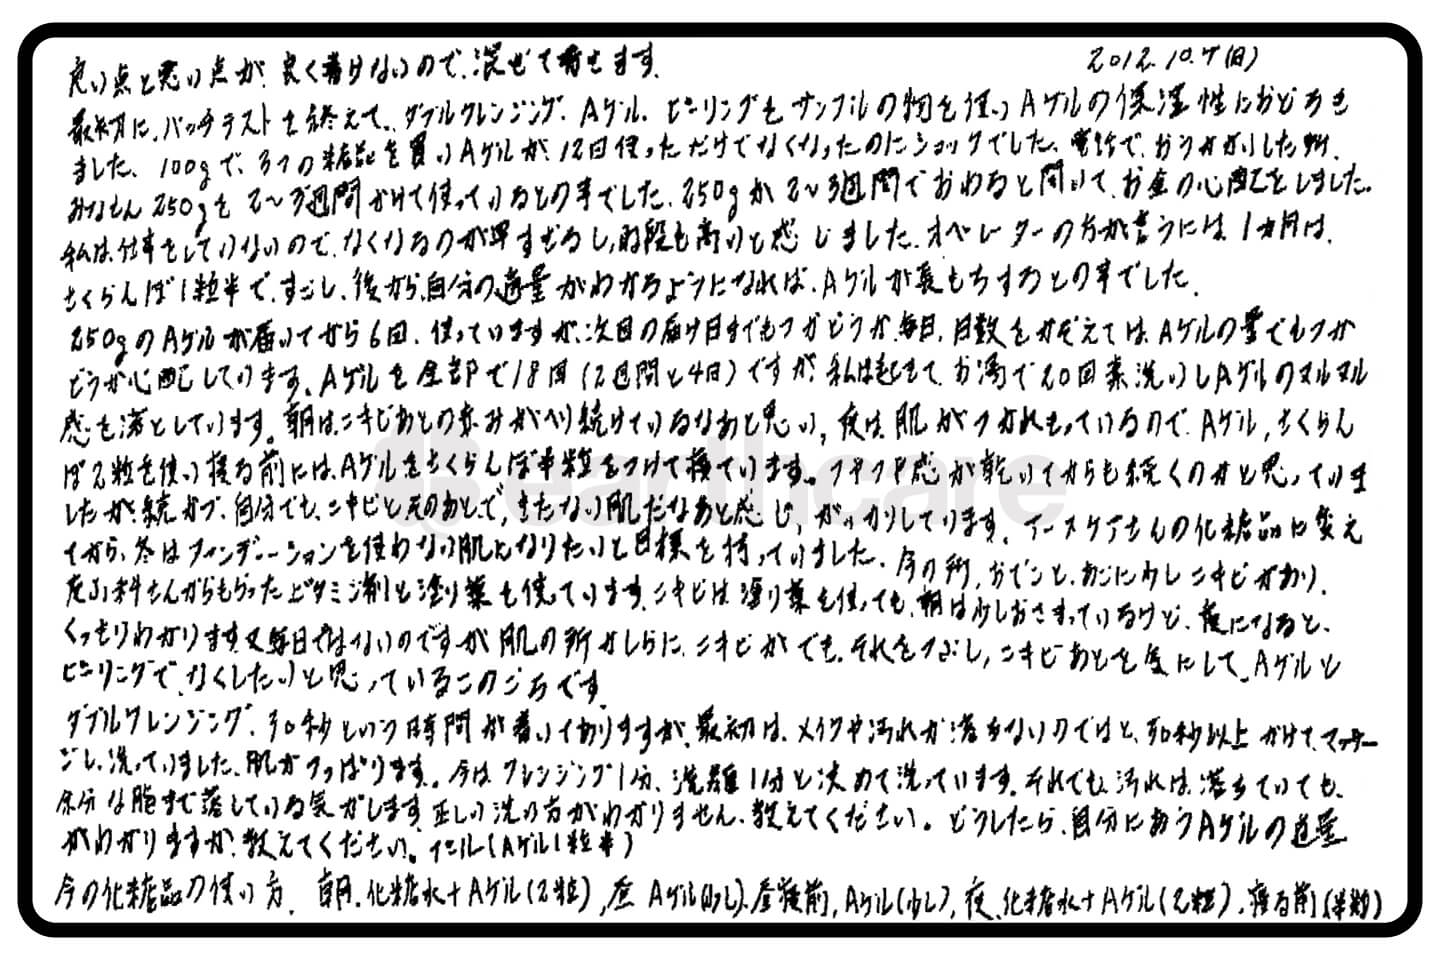 2012.10.7(日)
良い点と悪い点が、良く書けないので、混ぜて書きます。
最初に、パッチテストを終えて、ダブルクレンジング、Aゲル、ピーリングをサンプルの物を使いAゲルの保湿性におどろき
ました、100gで、3つの粧品を買いAゲルが、12回使っただけでなくなったのにショックでした、電話で、おうかがいした所、
みなさん250gを2〜3週間かけて使っているとの事でした、250gが2〜3週間でおわると聞いて、お金の心配をしました。
私は、仕事をしていないので、なくなるのが早すぎるし、値段も高いと感じました、オペレーターの方が言うには、1カ月は、
さくらんぼ1粒半で、すごし、後から、自分の適量がわかるようになれば、Aゲルが長もちするとの事でした、
250gのAゲルが届いてから6回、使っていますが、次回の届け日までもつかどうか、毎日、日数をかぞえては、Aゲルの量でもつか
どうか心配しています。Aゲルを全部で18回(2週間と4日)ですが、私は起きて、お湯で20回素洗いしAゲルのヌルヌル
感を落としています。朝は、ニキビあとの赤みがへり続けているなあと思い、夜は、肌がつかれきっているので、Aゲル、さくらん
ぼ2粒を使い寝る前には、Aゲルをさくらんぼ半粒をつけて寝ています。フヤフヤ感が乾いてからも続くのかと思っていま
したが、続かず、自分でも、ニキビとそのあとで、きたない肌だなあと感じ、がっかりしています、アースケアさんの化粧品に変え
てから、冬はファンデーションを使わない肌になりたいと目標を持っていました、今の所、おでこと、あごに少しニキビがあり、
皮ふ科さんからもらったビタミン剤と塗り薬も使ています、ニキビは、塗り薬を使っても、朝は少しおさまっているけど、夜になると、
くっきりわかります又毎日ではないのですが肌の所かしらに、ニキビがでも、それをつぶし、ニキビあとを気にして、Aゲルと
ピーリングで、なくしたいと思っているこのごろです、
ダブルクレンジング、30秒という時間が書いてありますが、最初は、メイクや汚れが落ちないのではと、30秒以上かけて、マッサー
ジし、洗っていました、肌がつっぱります。今はクレンジング1分、洗顔1分と決めて洗っています。それでも、汚れは、落ちていても、
余分な脂まで落している気がします、正しい洗い方がわかりません、教えてください。どうしたら、自分にあうAゲルの適量
がわかりますか、教えてください。アニル(Aゲル1粒半)
今の化粧品の使い方、朝、化粧水+Aゲル(2粒)、昼Aゲル(少し)、昼寝前、Aゲル(少し)、夜、化粧水+Aゲル(2粒)、寝る前(半粒)
earthcare